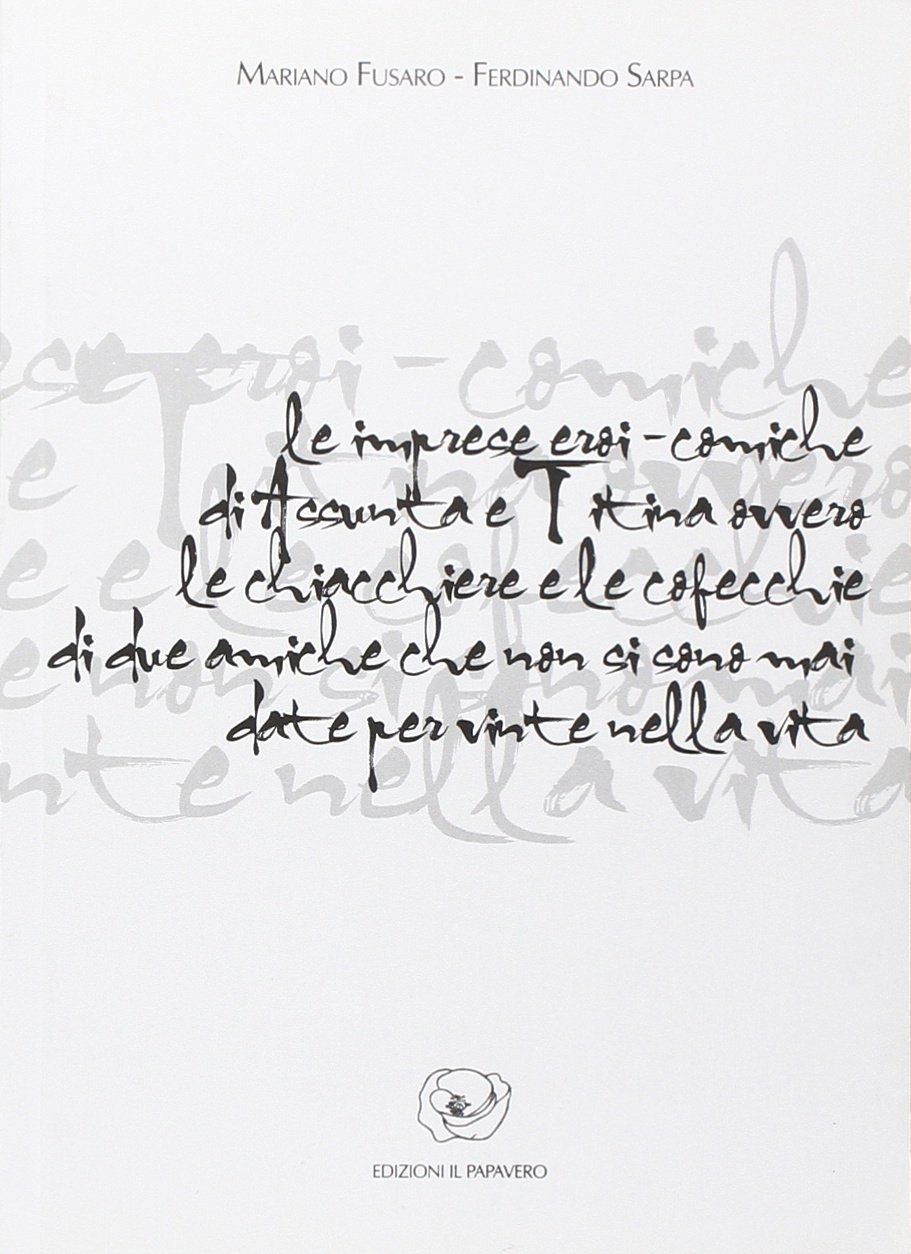 MARIANO FUSARO - FERDINANDO SARPA
le imprese eroi-comiche
di Assunta e Titina ovvero
le chiacchiere e le cofecchie
di due amiche che non si sono mai
date per vinte nella vita
EDIZIONI IL PAPAVERO